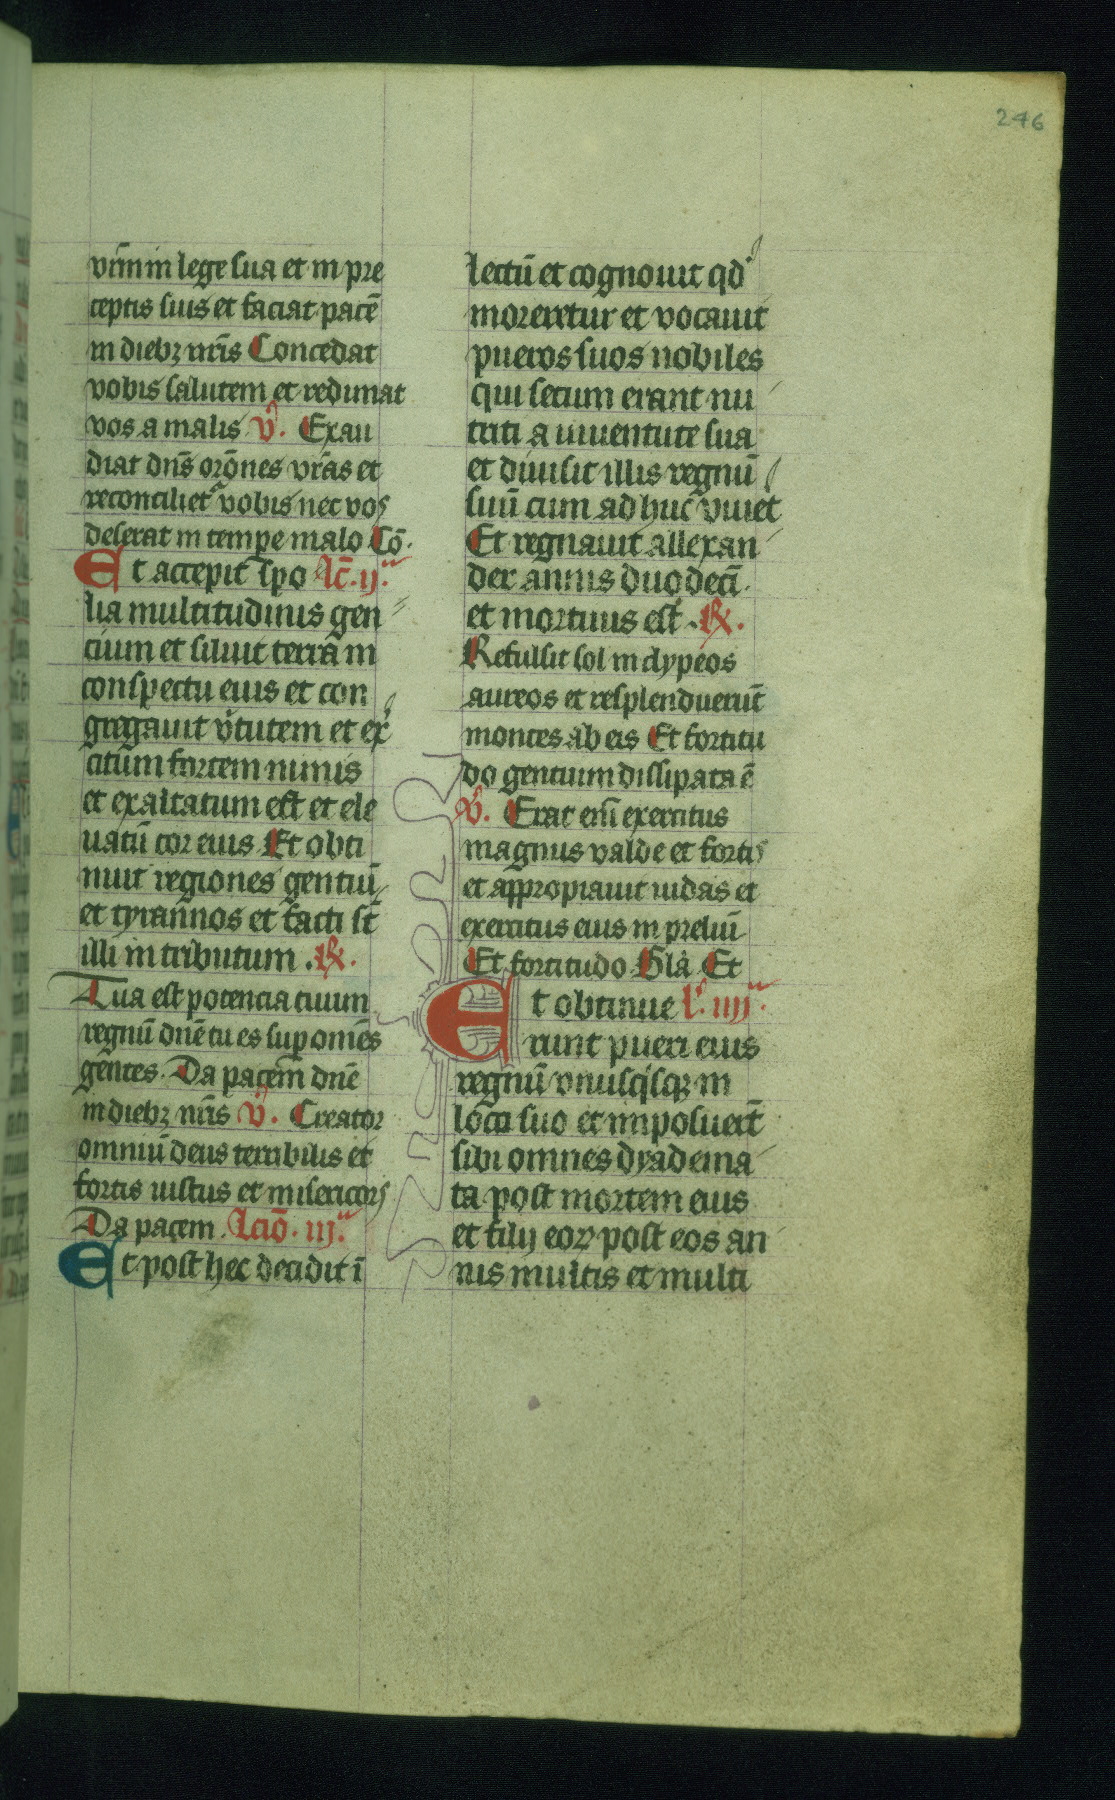 246
vr̄m in lege sua et in pre
ceptis suis et faciat pacē
in diebꝫ nr̄is Concedat
vobis salutem et redimat
vos a malis ℣. Exau
diat dn̄s orōnes vr̄as et
reconciliet᷑ vobis nec vos
deserat in tempe malo Cō.
Et accepit spo lc̄. ij.ᵃ
lia multitudinis gen
cium et siluit terra in
conspectu eius et con
gregauit v̄tutem et ex̾
citum fortem nimis
et exaltatum est et ele
uatū cor eius Et obti
nuit regiones gentiū
et tyrannos et facti st̄
illi in tributum. ℟.
Tua est potencia tuum
regnū dn̄e tu es suꝑ om̄es
gentes. Da pacem dn̄e
in diebꝫ nr̄is ℣. Creator
omniū deus terribilis et
fortis iustus et misericors
Da pacem. lc̄io. iij.ᵃ
Et post hec decidit ī
lectū et cognouit qd̾
moreretur et vocauit
pueros suos nobiles
qui secum erant nu
triti a iuuentute sua
et diuisit illis regnū
suū cum ad huc viuet᷑
Et regnauit allexan
der annis duodecī.
et mortuus est. ℟.
Refulsit sol in clypeos
aureos et resplenduerūt
montes ab eis Et fortitu
do gentium dissipata ē
℣. Erat em̄ exercitus
magnus valde et fortis
et appropiauit iudas et
exercitus eius in preliū
Et fortitudo Gl̄a Et
Et obtinue l̄c. iiij.ᵃ
runt pueri eius
regnū vnusq̇sqꝫ in
loco suo et imposuer̄t
sibi omnes dyadema
ta post mortem eius
et filij eoꝝ post eos an
nis multis et multi